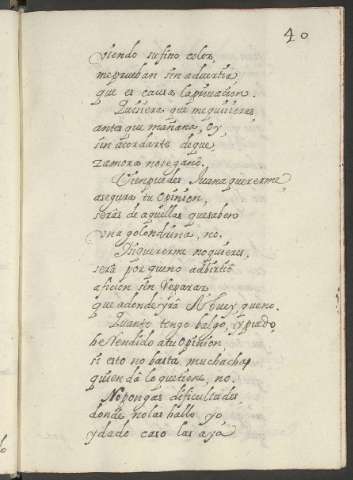 40
viendo su fino color,
me prueban sin advertir
que es causa la privation.
Quisiera que me quisieras
antes que mañana, oy
sin acordarte de que
Zamora no se ganò.
Bien puedes Juana quererme
asegura tu opinion,
seràs de aquellas que saben
una golondrina, no.
Si quererme no quieres,
serà por que no advirtio
aficion sin reparar
que adonde yrà el buey que no.
Quanto tengo balgo, y puedo
he rendido a tu opinion
si esto no basta muchacha
quien dà lo que tiene, no.
No pongas dificultades
donde no las hallo yo
y dado caso las aya